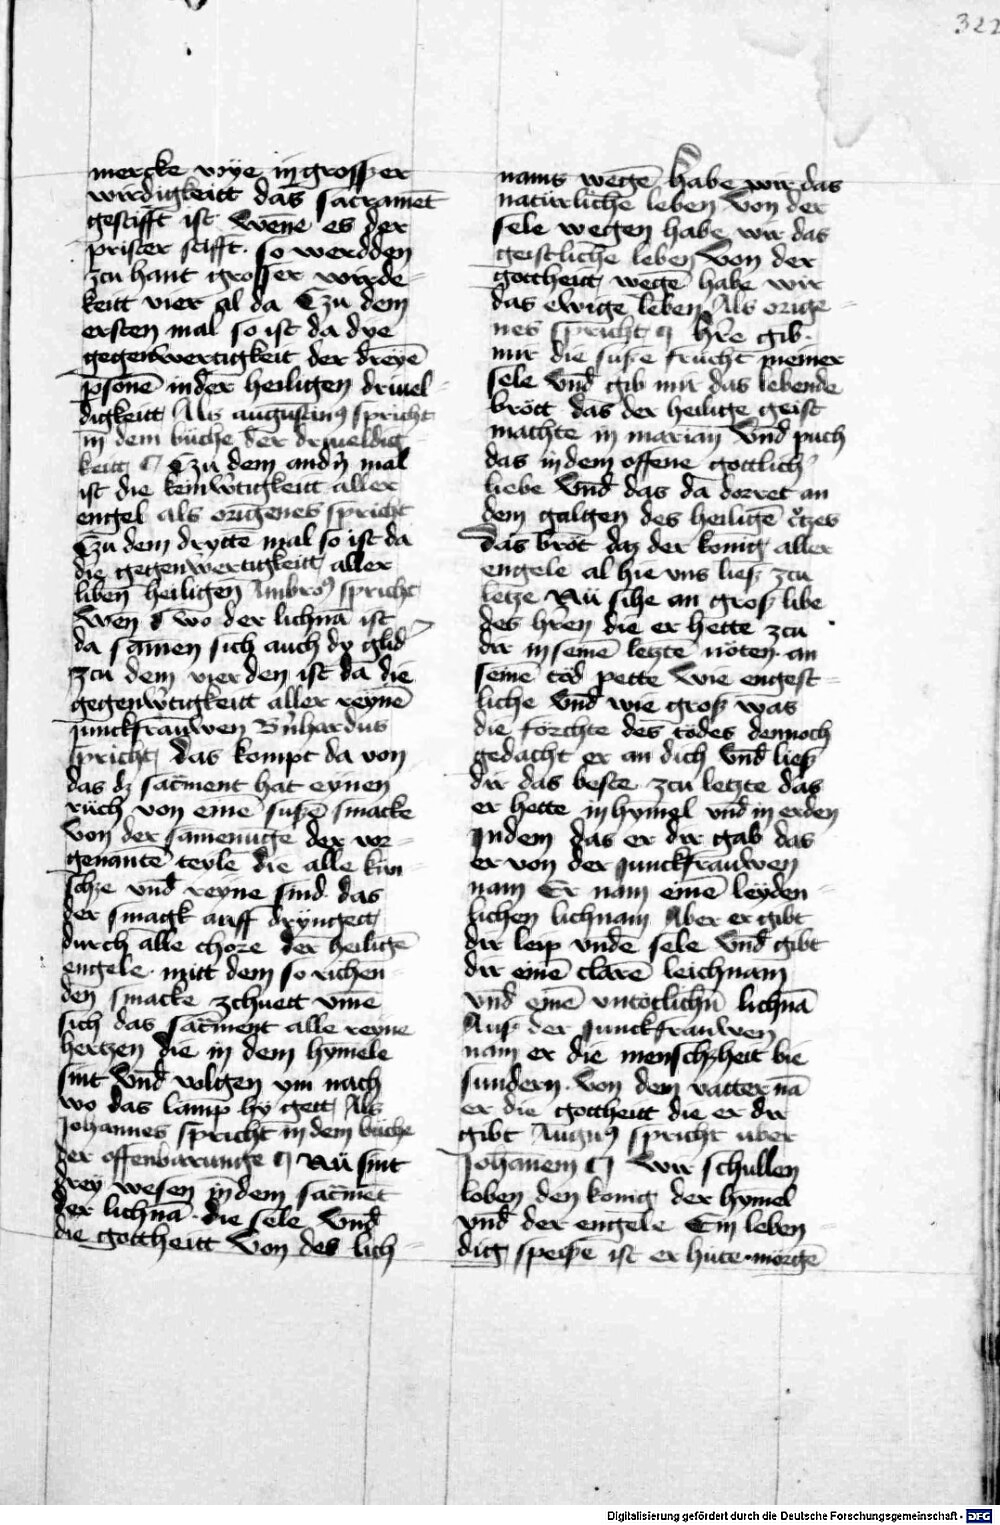 322
mercke wye in grosser
wirdigkeitt das sacramēt
gestifft ist Wēne es der
prister stifft · so werdden
zcu hant grosser wirde-
keitt vier al da Czu dem
ersten mal so ist da dye
gegenwertigkeit der dreyē
psonē in der heiligen driuel-
digkeitt Als augustin9 spricht
in dem büche der driueldig
keitt Czu dem andn mal
ist die keinwtigkeitt aller
engel als origenes spricht
Czu dem dryttē mal so ist da
die gegenwertigkeitt aller
liben heiligen Ambro9 spricht
Wen wo der lichnā ist
da samen sich auch dy glid
zcu dem vierden ist da die
gegenwtigkeitt aller reynē
junckfrauwen Bnhardus
spricht das kompt da von
das dz sacment hat eynen
rüch von einē sussē smacke
von der samenūge der vor-
genantē teyle die alle kūi-
sche vnd reyne sind das
der smagk auff dryngett
durch alle chore der heiligē
engele · mitt dem so richen-
den smacke zchuett vmē
sich das sacment alle reyne
hertzen die in dem hymele
sint Vnd volgen vm nach
wo das lamp hy gett Als
Johannes spricht in dem büche
der offenbarunge Nū sint
drey wesen in dem sacmēt
der lichnā · die sele Vnd
die gottheitt Von des lich-
nams wegē habe wir das
natürliche leben Von der
sele wegen habe wir das
geistliche leben Von der
gottheitt wegē habe wir
das ewige leben Als orige-
nes spricht hre gib
mir die susse frücht meiner
sele Vnd gib mir das lebende
brött das der heilige geist
machte in marian Vnd puch
das in dem offene gottlich
liebe Vnd das da dorret an
dem galgen des heiligē ctzes
Das bröt daz der konig aller
engele al hie vns liesz zcu
letze Nū sihe an grosz libe
des hren die er hette zcu
dir in seinē letztē nöten · an
seinē töd pette Wie engest-
liche Vnd wie grosz was
die förchte des tödes dennoch
gedacht er an dich Vnd liesz
dir das beste · zcu letzte das
er hette in hymel vnd in erden
Indem das er dir gab das
er von der junckfrauwen
nam Er nam einē leyden-
lichen lichnam Aber er gibt
dir leip vnde sele Vnd gibt
dir einē clarē leichnam
vnd einē vntötlichn lichnā
Aus der junckfrauwen
nam er die menschheit die
sundern · von dem vatter nā
er die gottheitt die er dir
gibt Augu9 spricht uber
Johanem Wir schullen
loben den konig der hymel
vnd der engele Ein leben-
dig speise ist er hüte · mörgē
Digitalisierung gefördert durch die Deutsche Forschungsgemeinschaft - DFG